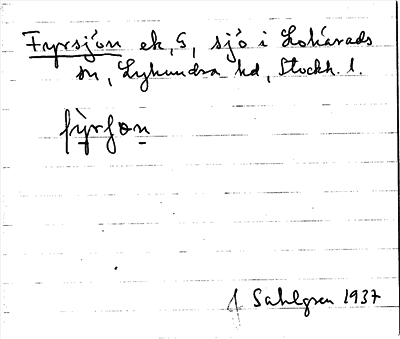 Fyrsjön ek, S, sjö i Lohärads
sn, Lyhundra hd, Stockh. l.
fyrʃɷn
J Sahlgren 1937